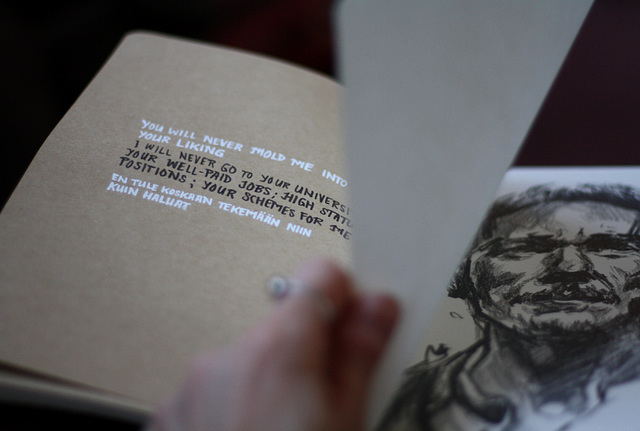 YOU WILL NEVER MOLD ME INTO
YOUR LIKING
I WILL NEVER GO TO YOUR
YOUR WELL-PAID JOBS; HIGH
POSITIONS; YOUR SCHEMES FOR ME
EN TULE KOSKAAN TEKEMÄÄN NIIN
KUIN HALUAT